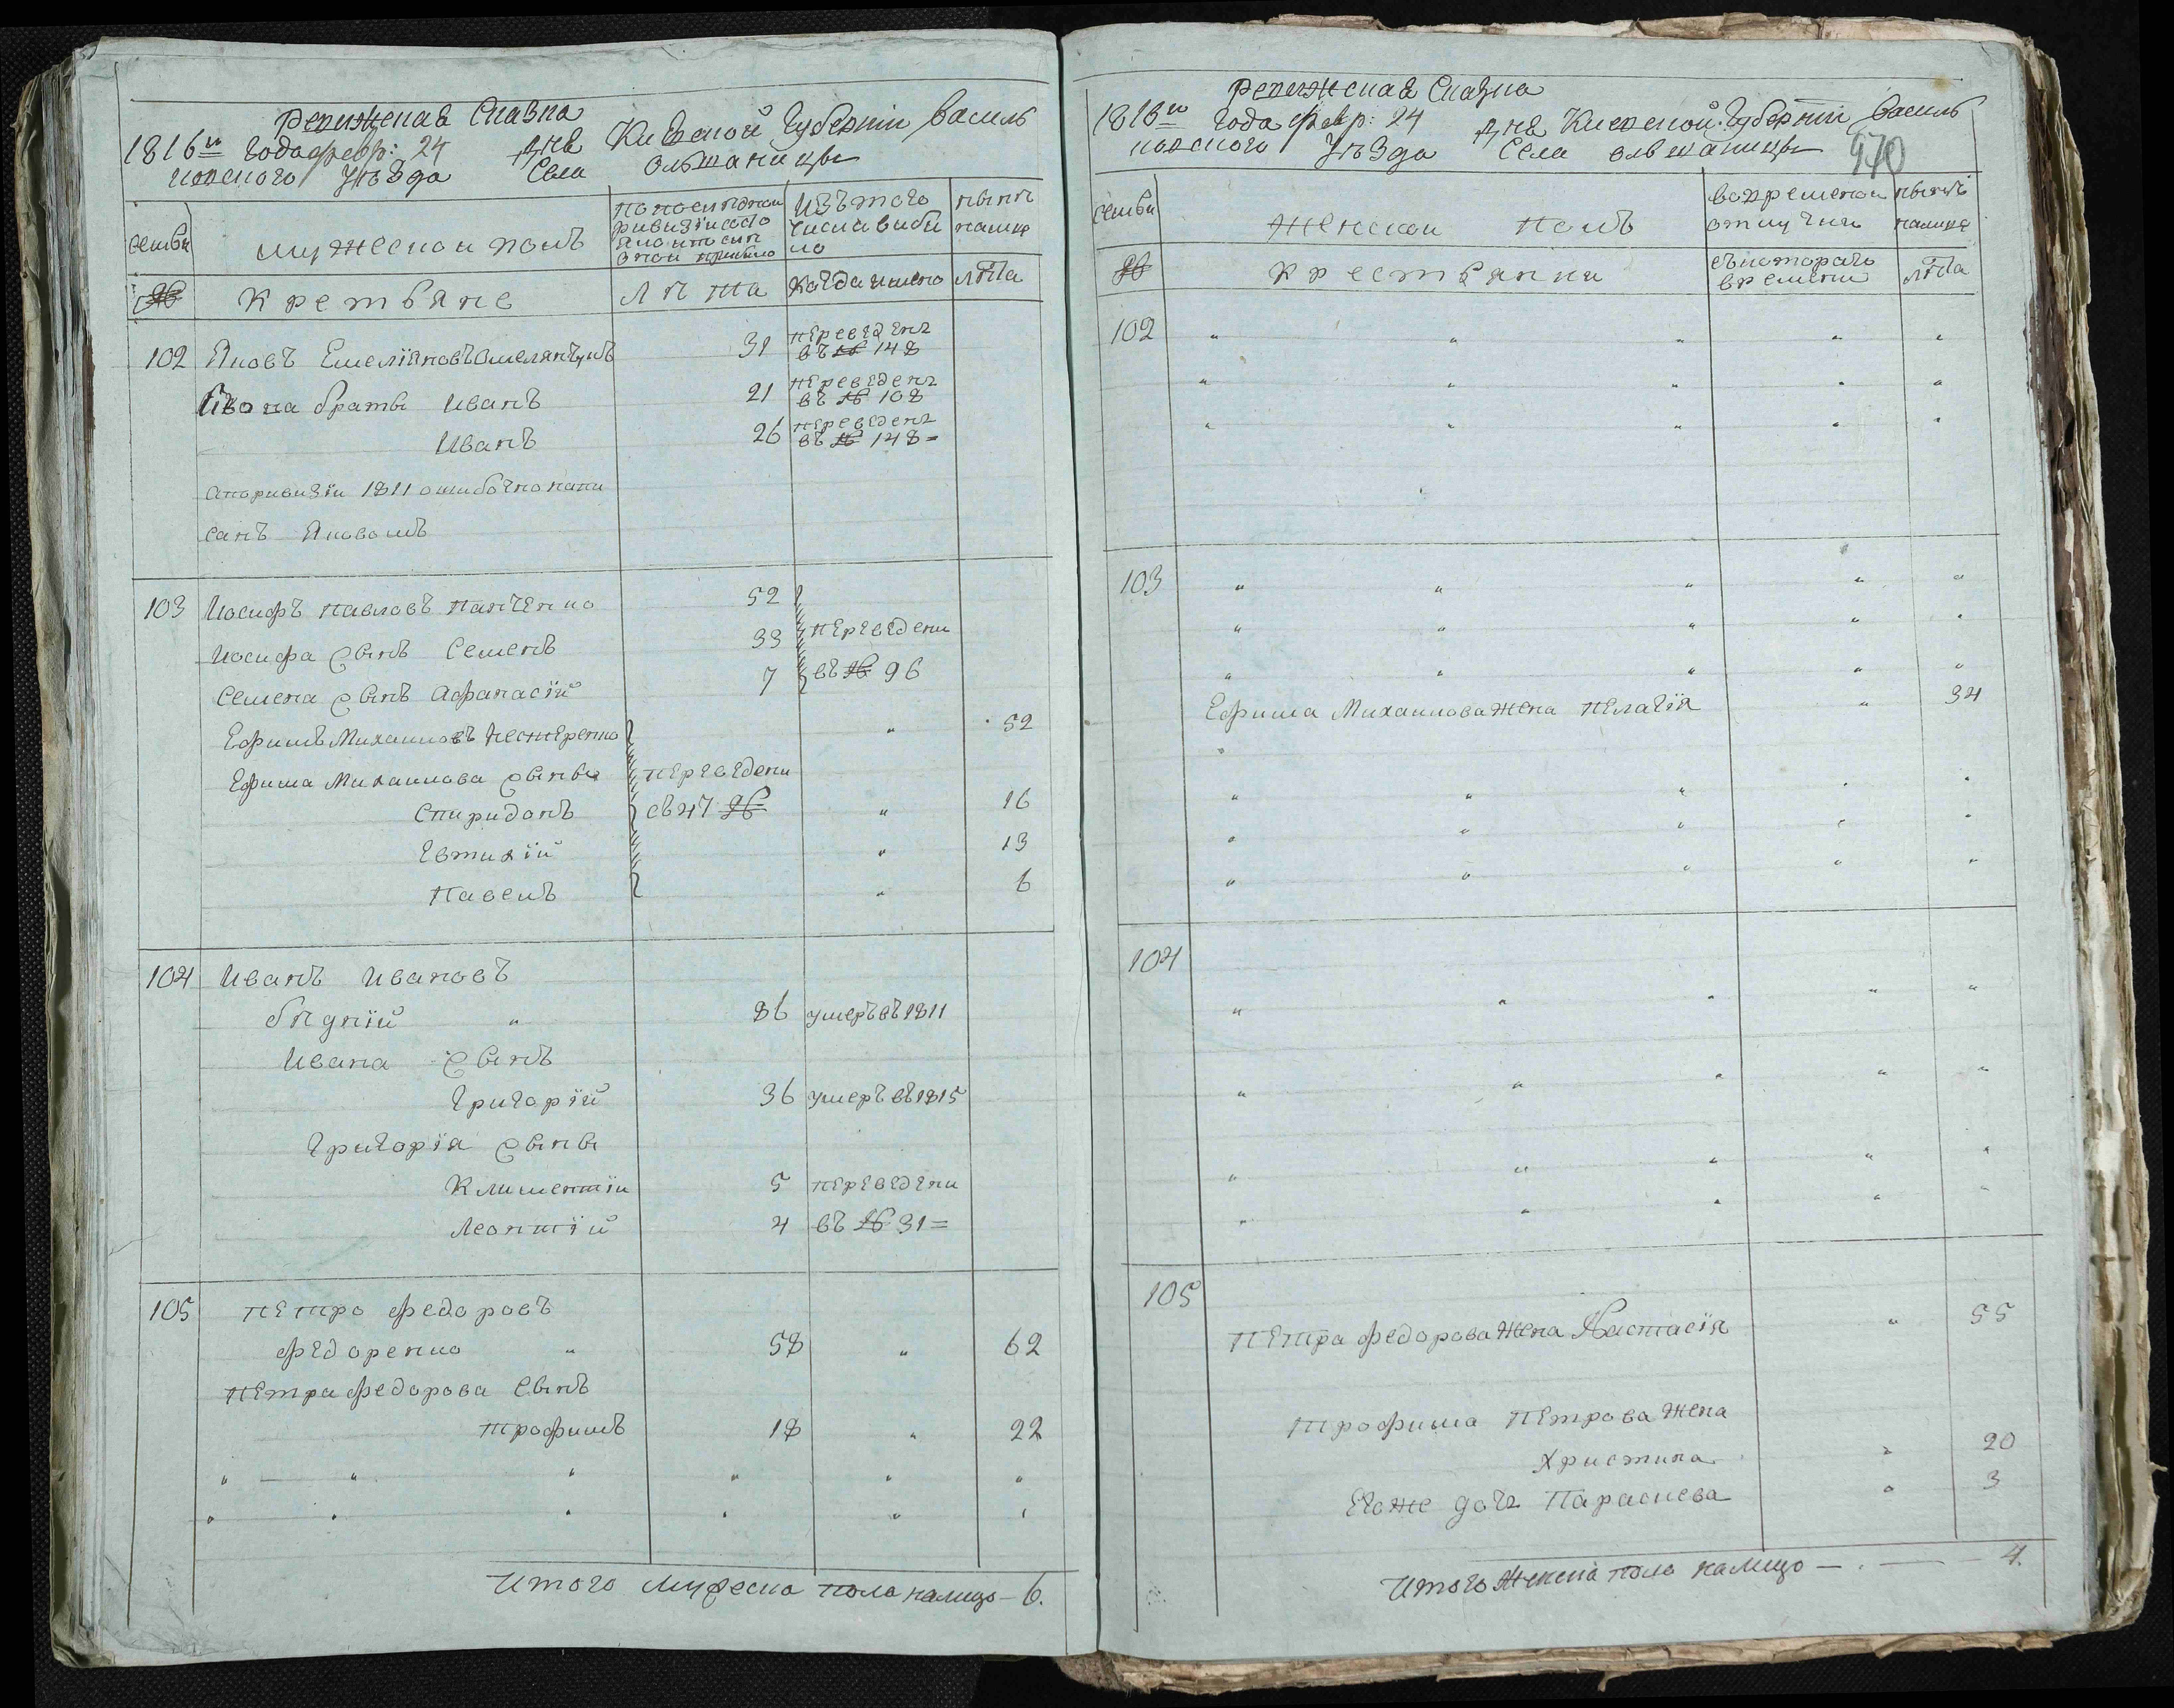 Ревижская Сказка
1816го Года февр: 24 дня Киевской Губернии Василь
ковского Уѣзда Села Ольшаницы
семьи
мужеской полъ
По последной ревизіи состояло и после оной прибыло
Изъ того числа выбыло
нынѣ налице
№
Крестьяне
лѣта
когда имено
лѣта
102 Яковъ Емеліяновъ Омелянчукъ 31 переведенъ въ № 148
Якова братья Иванъ 21 переведенъ въ № 108
Иванъ 26 переведенъ въ № 148=
а по ривизіи 1811 ошибочно напи
санъ Яковомъ
103 Иосифъ Павловъ Панченко 52
Иосифа сынъ Семенъ 33 переведени
Семена сынъ Афанасій 7 въ № 96
Ефимъ Михаиловъ Нестеренко " 52
Ефима Михаилова сынъ переведени
Спиридонъ съ 47 № " 16
Евтихій " 13
Павелъ " 6
104 Иванъ Ивановъ
бѣдній " 86 умеръ въ 1811
Ивана сынъ
Григорій 36 умеръ въ 1815
Григорія сыны
Климентіи 5 переведени
Леонтій 4 въ № 31=
105 Петро Федоровъ
Федоренко " 58 " 62
Петра Федорова сынъ
Трофимъ 18 " 22
" — " " " " "
" " " " " "
Итого мужеска пола налицо — 6.
Ревижская Сказка
1816го Года февр: 24 дня Киевской Губерній Василь
ковского Уѣзда Села Ольшаницы
970
семьи
Женской полъ
во временой отлучки
нынѣ налице
№
Крестьянки
съ котораго времени
лѣта
102 " " " " "
" " " " "
" " " " "
103 " " " " "
" " " " "
" " " " "
Ефима Михаилова жена Пелагія " 34
"
" " " " "
" " " " "
" " " " "
104
" " " " "
" " " " "
" " " " "
" " " " "
105
Петра Федорова жена Настасія " 55
Трофима Петрова жена
Христина " 20
Егоже дочь Параскева " 3
Итого женска пола налицо — . — — 4.